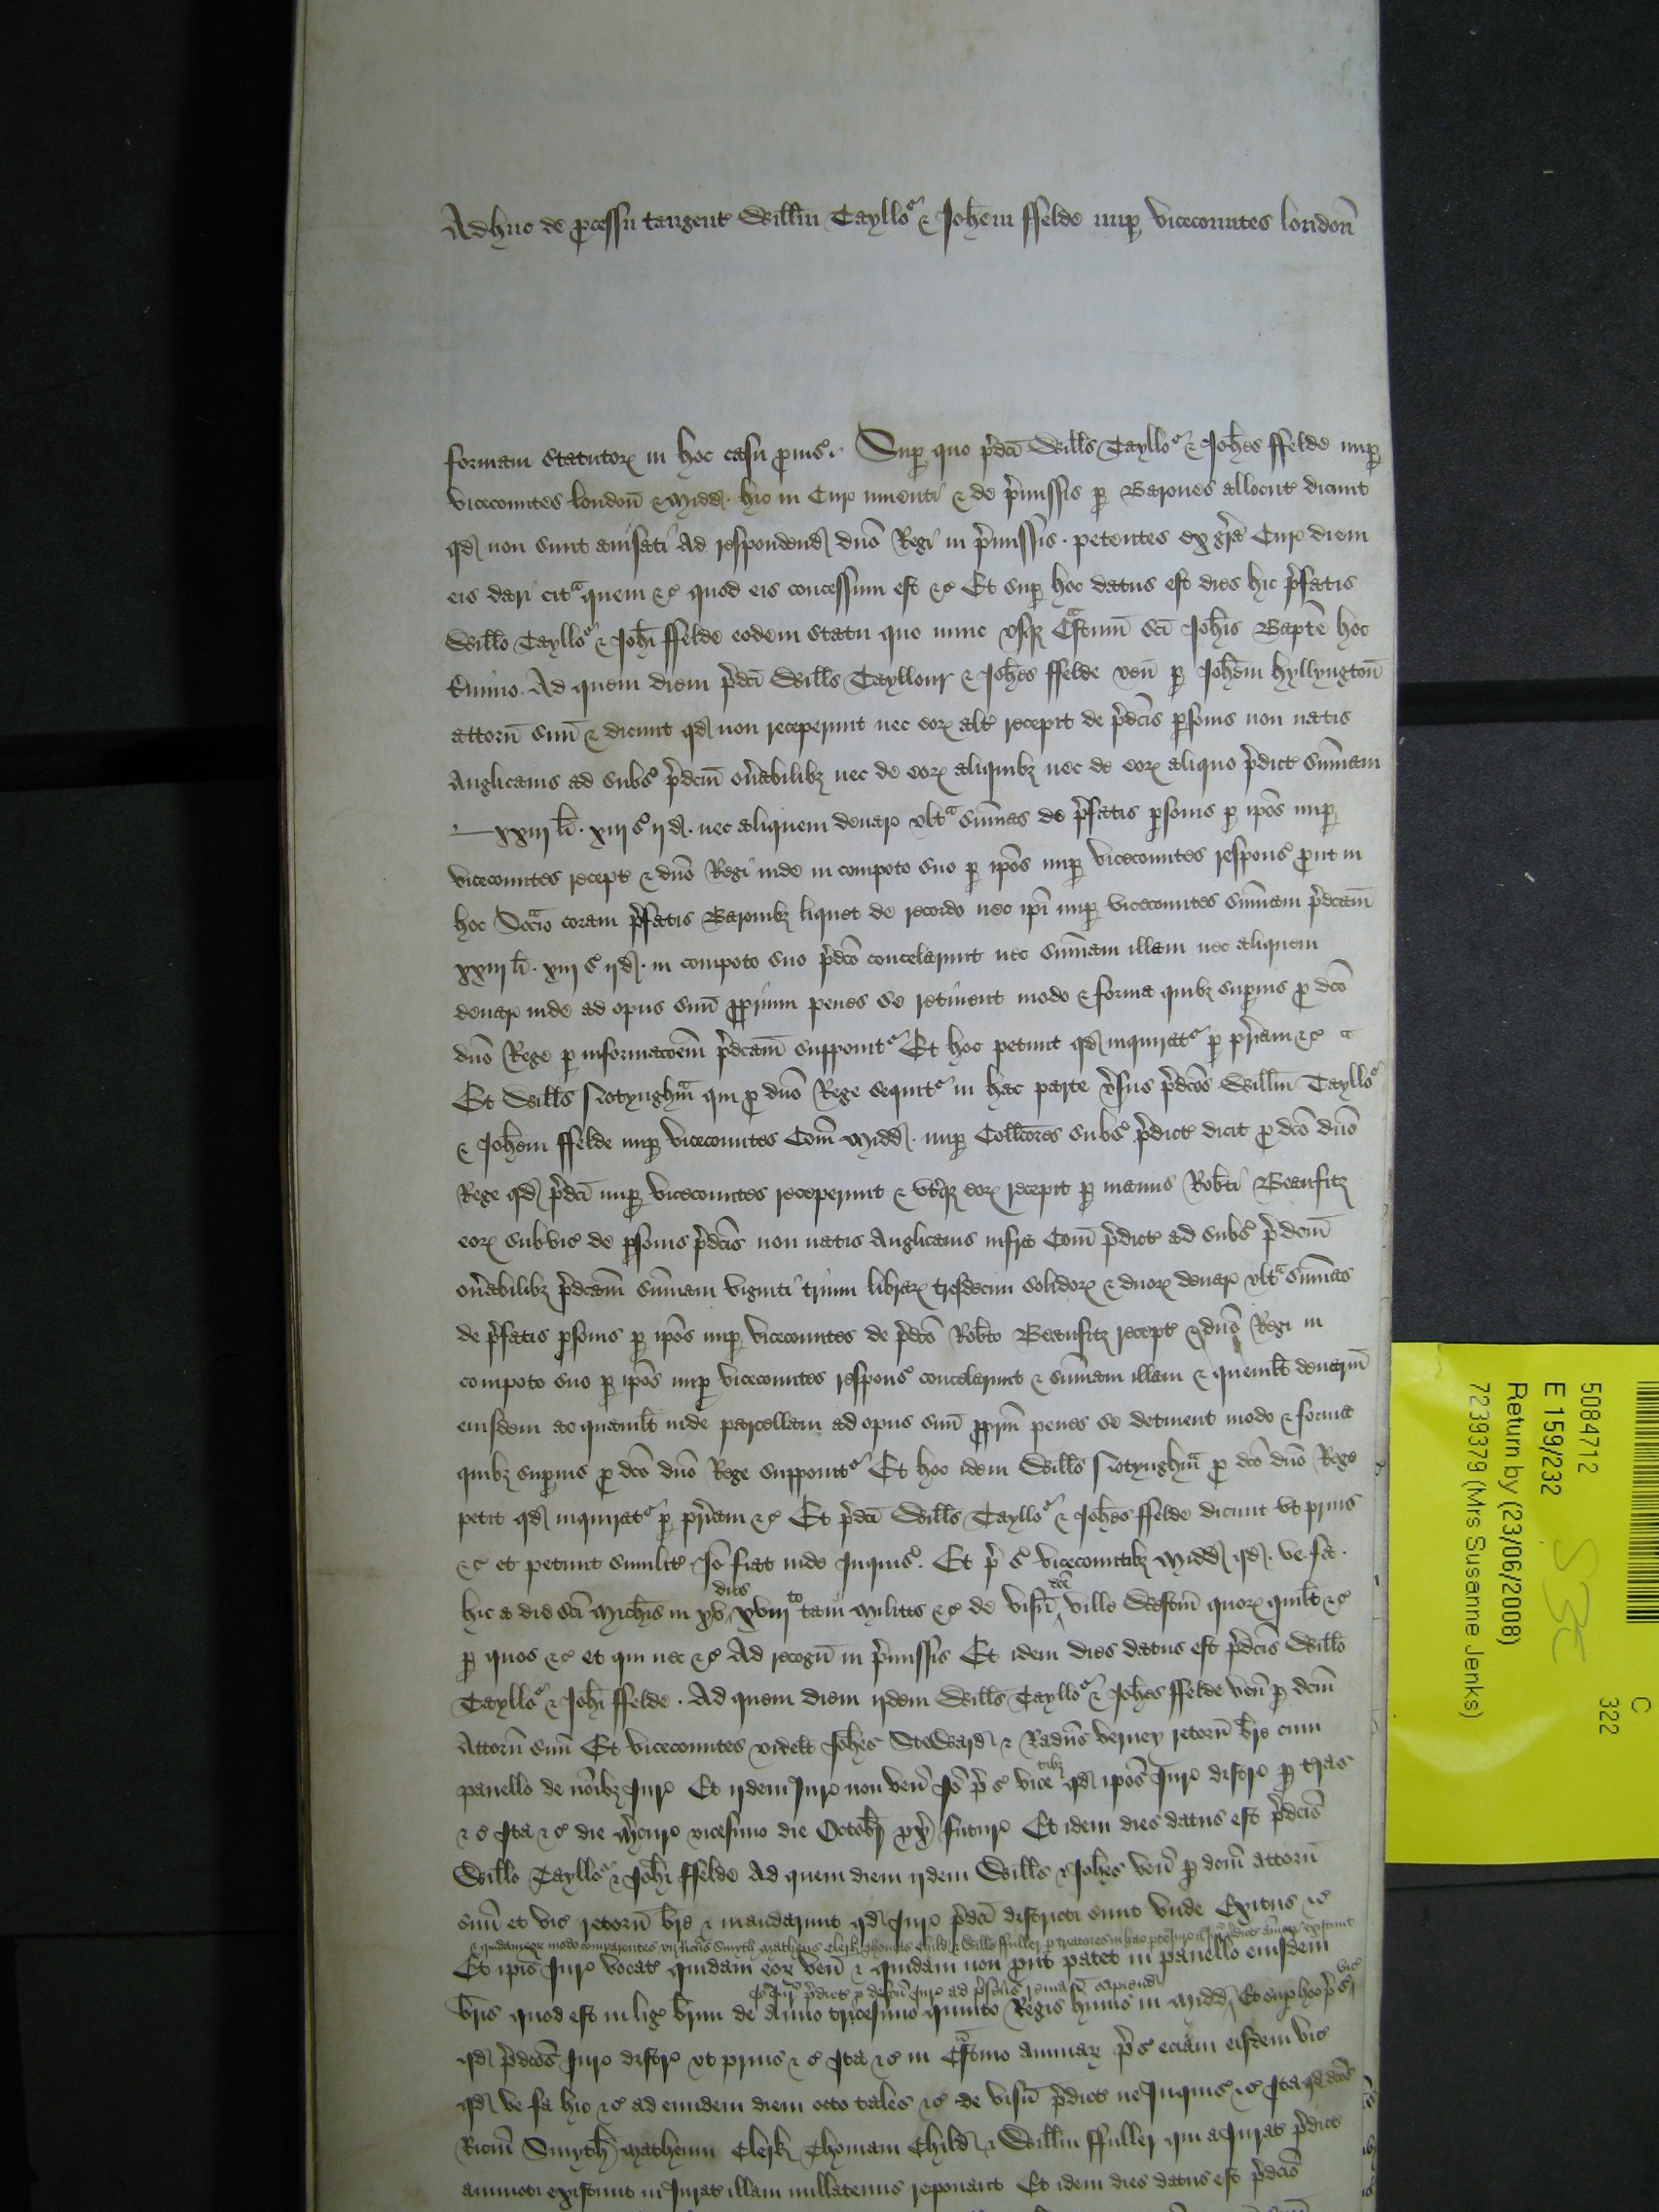 Adhuc de p̱cessu tangent̃ Willm̃ Taylloʳ & Joħem ffelde nup̱ vicecomites londoñ
formam statutoꝝ in hoc casu p̱uis̃. Sup̱ quo p̃dc̃i Willꝉs Taylloʳ & Joħes ffelde nup̱
vicecomites londoñ & Midd̃. hic in Cur̃ inuenti & de p̃missis p̱ Barones allocut̃ dicunt
qd̃ non sunt auisati Ad respondend̃ dño Regi in p̃missis. petentes ex gr̃a Cur̃ diem
eis dari citᵃ quem &c̃ quod eis concessum est &c̃ Et sup̱ hoc datus est dies hic p̃fatis
Willo Taylloʳ & Joħi ffelde eodem statu quo nunc vsqꝫ Cᵃstinũ Sci Joħis Bapte hoc
t̃mino. Ad quem diem p̃dc̃i Willꝉs Tayllour & Joħes ffelde veñ p̱ Joħem hyllyngtoñ
attorñ suũ & dicunt qd̃ non receperunt nec eoꝝ alt̃ recepit de p̃dc̃is p̱sonis non natis
Anglicanis ad subs̃ p̃dcm̃ oñabilibꝫ nec de eoꝝ aliquibꝫ nec de eoꝝ aliquo p̃dict̃ sum̃am
xxiij li. xiij s̃ ij d̃. nec aliquem denar̃ vltᵃ sum̃as de p̃fatis p̱sonis p̱ ipõs nup̱
vicecomites recept̃ & dño Regi inde in compoto suo p̱ ipõs nup̱ vicecomites respons̃ p̱ut in
hoc Scc̃io coram p̃fatis Baronibꝫ liquet de recordo nec ipĩ nup̱ vicecomites sum̃am p̃dcam̃
xxiij li. xiij s̃ ij d̃. in compoto suo p̃dc̃o concelarunt nec sum̃am illam nec aliquem
denar̃ inde ad opus suũ p̱prium penes se retinent modo & forma quibꝫ sup̱ius p̱ dc̃o
dño Rege p̱ informac̃oem̃ p̃dcam̃ supponitʳ Et hoc petunt qd̃ inquiratʳ p̱ pr̃iam &c̃
Et Willꝉs Notynghm̃ qui p̱ dño Rege sequitʳ in hac parte ṽsus p̃dc̃os Willm̃ Taylloʳ
& Joħem ffelde nup̱ vicecomites Com̃ Midd̃. nup̱ Collc̃ores subs̃ p̃dict̃ dicit p̱ dc̃o dño
Rege qd̃ p̃dc̃i nup̱ vicecomites receperunt & vt̃qꝫ eoꝝ recepit p̱ manus Rob̃ti Beaufitz
eoꝝ subvic̃ de p̱sonis p̃dc̃is non natis Anglicanis infra Com̃ p̃dict̃ ad subs̃ p̃dcm̃
oñabilibꝫ p̃dcam̃ sum̃am viginti trium libraꝝ tresdecim solidoꝝ & duoꝝ denar̃ vltᵃ sum̃as
de p̃fatis p̱sonis p̱ ipõs nup̱ vicecomites de p̃dc̃o Rob̃to Beaufitz recept̃ & dño Regi in
compoto suo p̱ ipõs nup̱ vicecomites respons̃ concelarunt & sum̃am illam & quemlꝫ denariũ
eiusdem ac quamlꝫ inde parcellam ad opus suũ p̱prim̃ penes se detinent modo & forma
quibꝫ sup̱ius p̱ dc̃o dño Rege supponitʳ Et hoc idem Willꝉs Notynghm̃ p̱ dc̃o dño Rege
petit qd̃ inquiratʳ p̱ pr̃iam &c̃ Et p̃dc̃i Willꝉs Taylloʳ & Joħes ffelde dicunt vt prius
&c̃ et petunt similit̃ Jõ fiat inde Inquis̃. Et p̃ s̃ vicecomitibꝫ Midd̃ qd̃. ve. fa.
hic a die Sci Micħis in xv dies xviijᵗᵒ tam milites &c̃ de visñ dc̃e ville Westm̃ quoꝝ quilꝫ &c̃
p̱ quos &c̃ et qui nec &c̃ Ad recogñ in p̃missis Et idem dies datus est p̃dc̃is Willo
Taylloʳ & Joħi ffelde. Ad quem diem ijdem Willꝉs Taylloʳ & Joħes ffelde veñ p̱ dcm̃
Attorñ suũ Et vicecomites videlt Joħes Steward̃ & Radũs verney retorñ br̃e cum
panello de nõibꝫ Jur̃ Et ijdem Jur̃ non veñ Jõ p̃ s̃ vicetibꝫ qd̃ ipõs Jur̃ distr̃ p̱ tr̃as
&c̃ Ita &c̃ die M̃cur̃ vicesimo die Octobr̃ px̃ futur̃ Et idem dies datus est p̃dc̃is
Willo Taylloʳ & Joħi ffelde Ad quem diem ijdem Willꝉs & Joħes veñ p̱ dcm̃ attorñ
suũ et vic̃ retorñ br̃e & mandarunt qd̃ Jur̃ p̃dc̃i districti sunt vnde Exitus &c̃
& quidam eoꝝ modo comparentes vizt Ric̃us Smyth Matheus Clerk Thomas Child & Willꝉs ffuller
Et ipĩs Jur̃ vocat̃ quidam eoꝝ veñ & quidam non p̱ut patet in panello eiusdem
br̃is quod est in lig̃ br̃ium de Anno tricesimo quinto Regis huius in Midd̃ Et sup̱ hoc p̃ s̃ vic̃
qd̃ p̃dc̃os Jur̃ distr̃ vt prius &c̃ Ita &c̃ in Cᵃstino animaꝝ p̃ s̃ eciam eisdem vic̃
qd̃ ve fa hic &c̃ ad eundem diem octo tales &c̃ de visñ p̃dict̃ ne Inquis̃ &c̃ Ita qd̃ dc̃os
Ricm̃ Smyth Matheum Clerk Thomam Child̃ & Willm̃ ffuller qui a Jurat̃ p̃dict̃
ammoti existunt in Jurat̃ illam nullatenus reponant Et idem dies datus est p̃dc̃is
5084712
C
322
E 159/232
Return by (23/06/2008)
7239379 (Mrs Susanne Jenks)